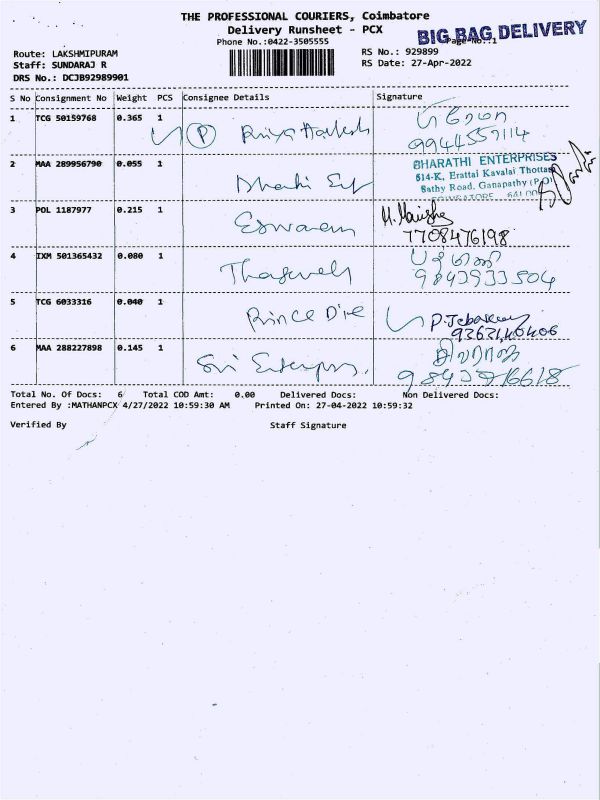 THE PROFESSIONAL COURIERS, Coimbatore
Delivery Runsheet - PCX
BIG BAG DELIVERY
Phone No.:0422-3505555
Page No.:1
Route: LAKSHMIPURAM
RS No.: 929899
Staff: SUNDARAJ R
RS Date: 27-Apr-2022
DRS No.: DCJB92989901
S No Consignment No Weight PCS Consignee Details Signature
1 TCG 50159768 0.365 1
P
9944557114
2 MAA 289956790 0.055 1
BHARATHI ENTERPRISES
614-K, Erattai Kavalai Thottam
Sathy Road, Ganapathy (P.O)
COIMBATORE
3 POL 1187977 0.215 1 Eswaran
7708476198
4 IXM 501365432 0.080 1
9843933504
5 TCG 6033316 0.040 1 Prince Die
6 MAA 288227898 0.145 1 Sri
Total No. Of Docs: 6 Total COD Amt: 0.00 Delivered Docs: Non Delivered Docs:
Entered By :MATHANPCX 4/27/2022 10:59:30 AM Printed On: 27-04-2022 10:59:32
Verified By Staff Signature